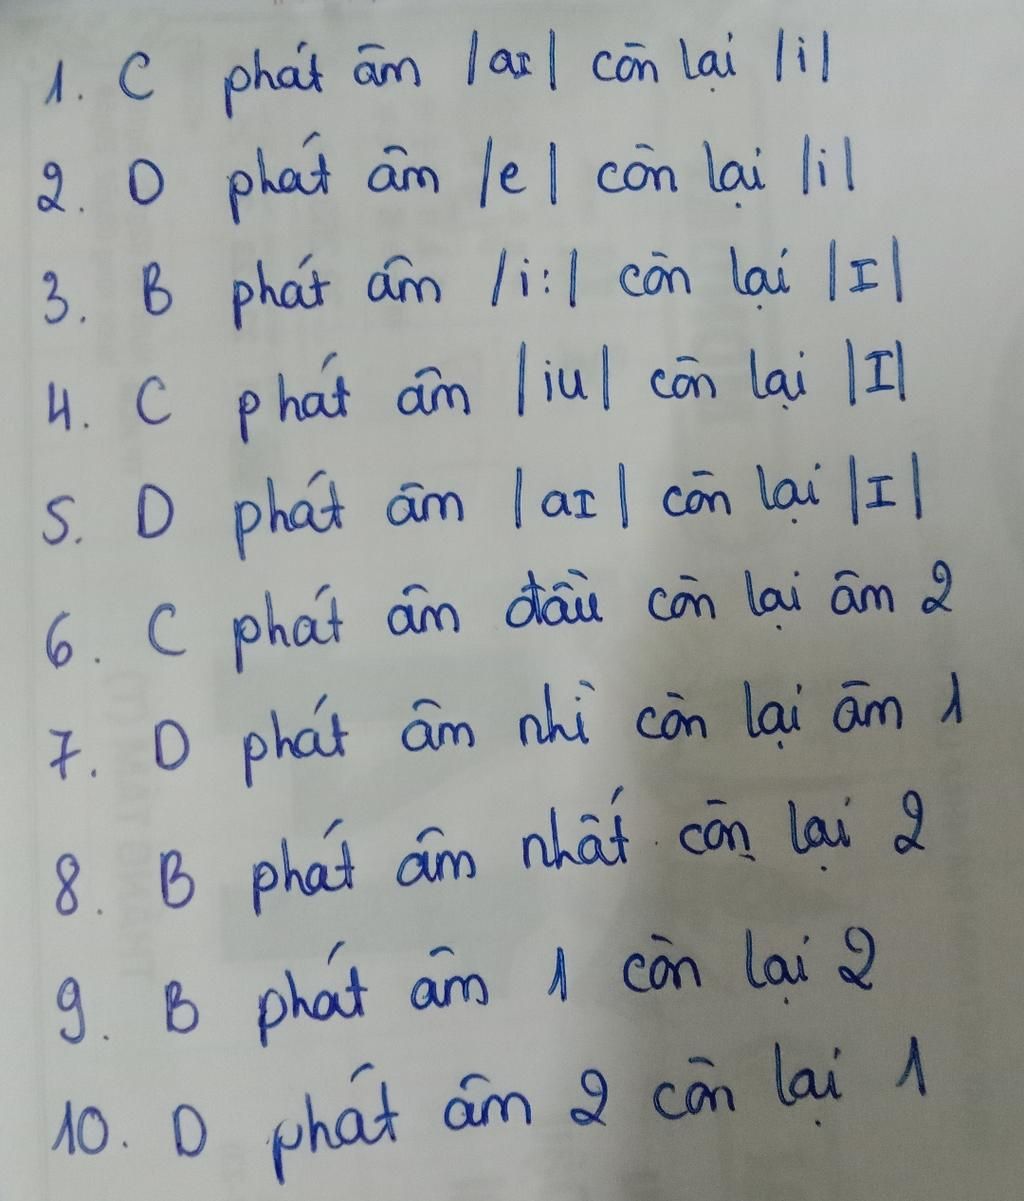 1. C phát âm /aɪ/ còn lại /i/
2. D phát âm /e/ còn lại /i/
3. B phát âm /i:/ còn lại /ɪ/
4. C phát âm /iu/ còn lại /ɪ/
5. D phát âm /aɪ/ còn lại /ɪ/
6. C phát âm đầu còn lại âm 2
7. D phát âm nhì còn lại âm 1
8. B phát âm nhất còn lại 2
9. B phát âm 1 còn lại 2
10. D phát âm 2 còn lại 1